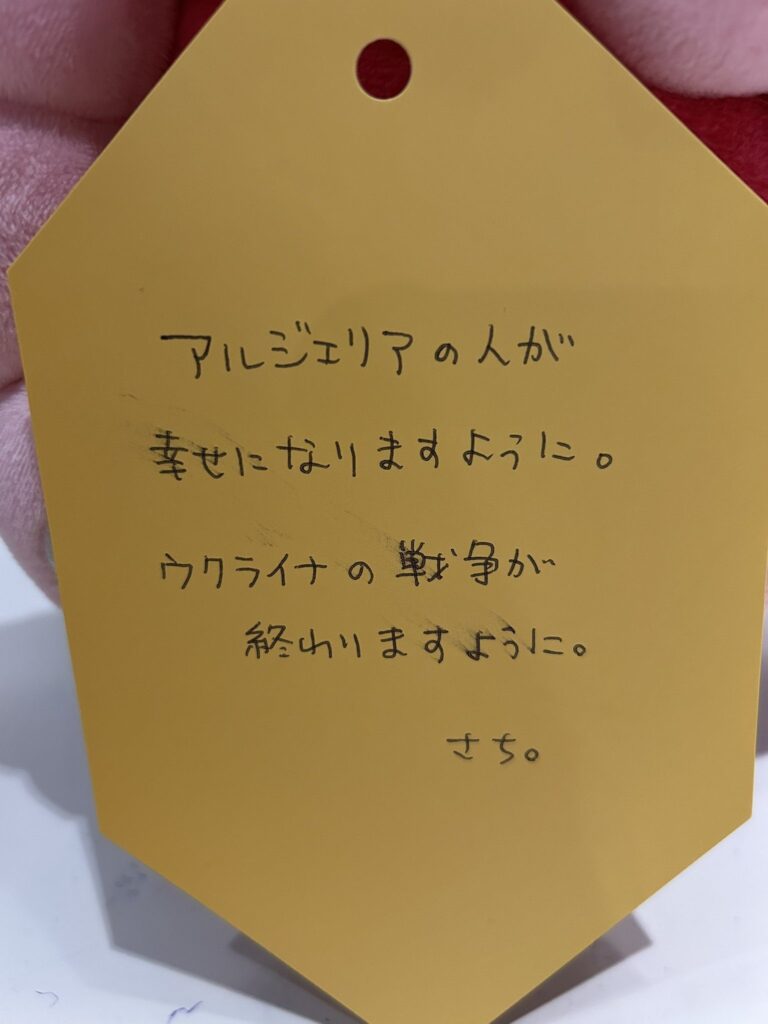 アルジェリアの人が
幸せになりますように。
ウクライナの戦争が
終わりますように。
さち。